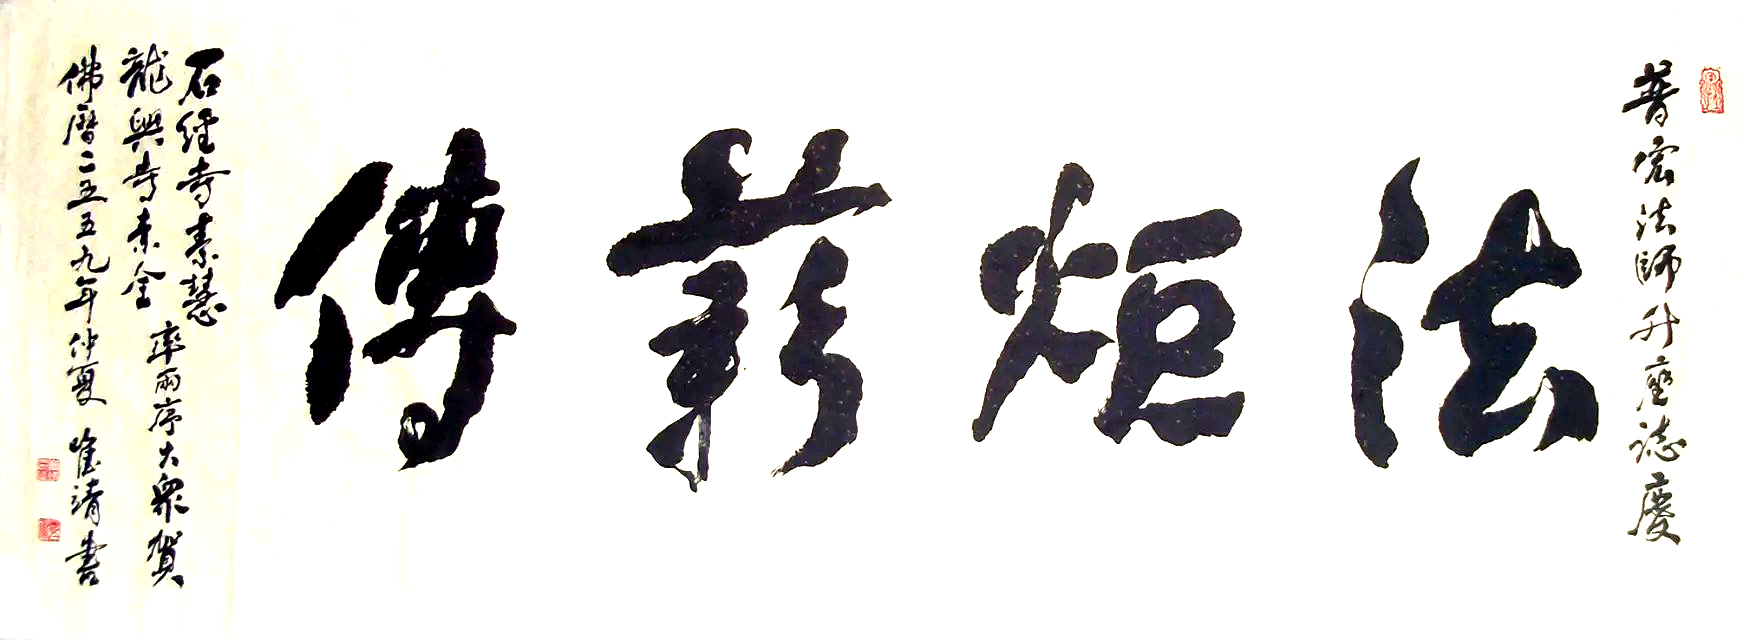 普宏法師升座誌慶
法炬薪傳
石經寺素慧
龍興寺素全
率兩序大眾賀
佛曆二五五九年仲夏 崔靖書